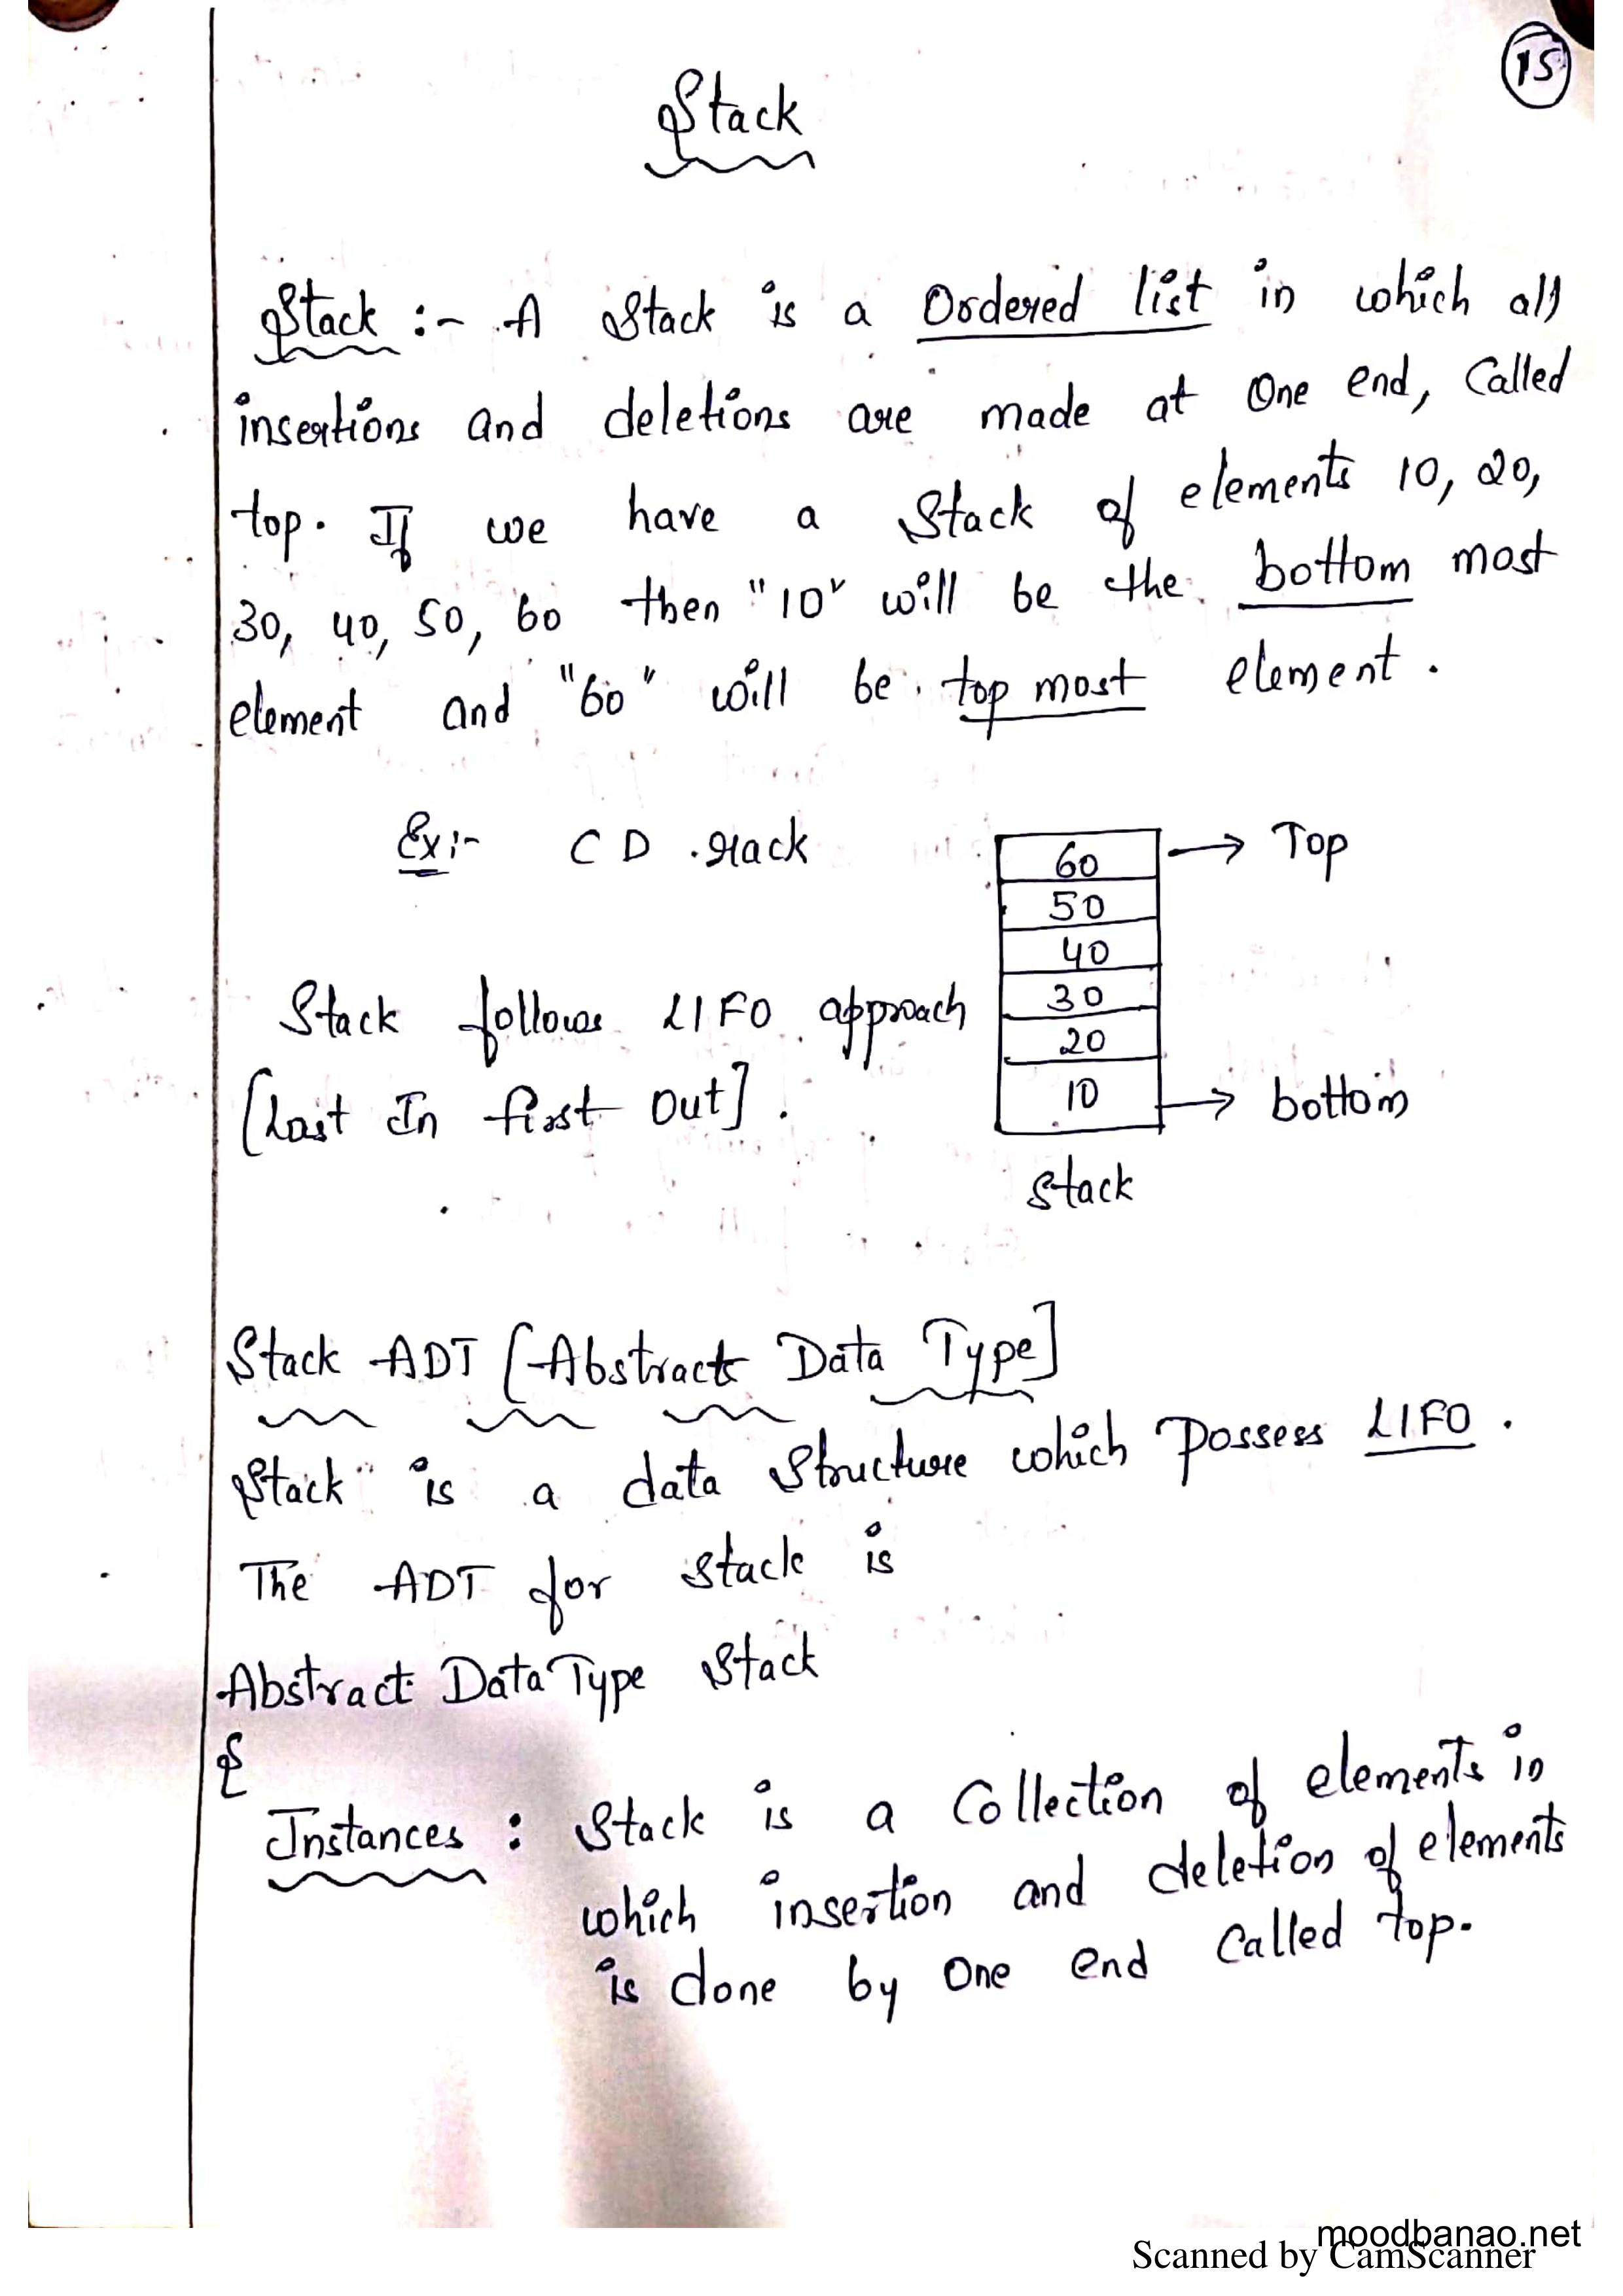 15
Stack
Stack :- A Stack is a Ordered list in which all
insertions and deletions are made at One end, Called
top. If we have a Stack of elements 10, 20,
30, 40, 50, 60 then "10" will be the bottom most
element and "60" will be top most element.
Ex:- CD stack
60 → Top
50
40
Stack follows LIFO approach
30
20
[Last In first Out].
10 → bottom
Stack
Stack ADT [Abstract Data Type]
Stack is a data Structure which Possess LIFO.
The ADT for stack is
Abstract DataType Stack
{
Instances : Stack is a Collection of elements in
which insertion and deletion of elements
is done by One end Called top.
moodbanao.net
Scanned by CamScanner